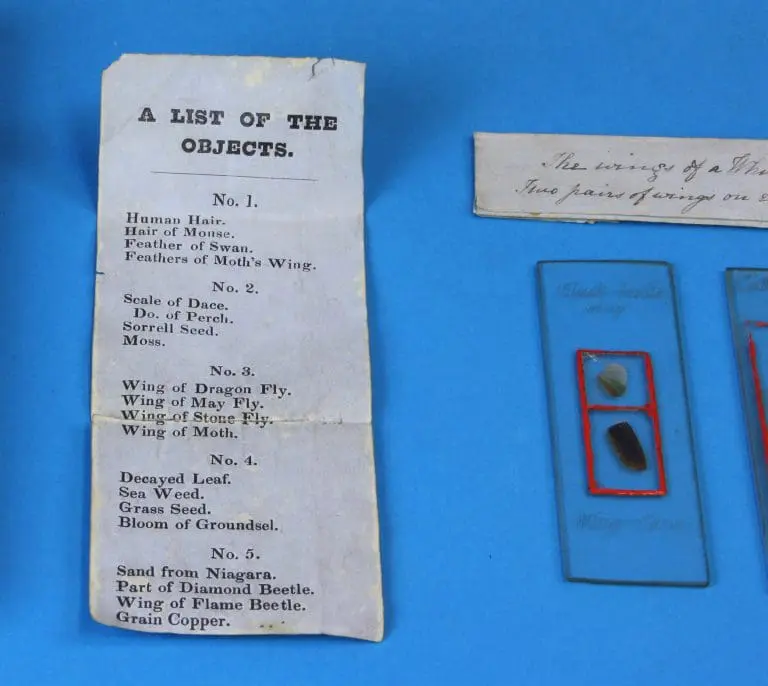 A LIST OF THE
OBJECTS.
No. 1.
Human Hair.
Hair of Mouse.
Feather of Swan.
Feathers of Moth's Wing.
No. 2.
Scale of Dace.
Do. of Perch.
Sorrell Seed.
Moss.
No. 3.
Wing of Dragon Fly.
Wing of May Fly.
Wing of Stone Fly.
Wing of Moth.
No. 4.
Decayed Leaf.
Sea Weed.
Grass Seed.
Bloom of Groundsel.
No. 5.
Sand from Niagara.
Part of Diamond Beetle.
Wing of Flame Beetle.
Grain Copper.
The wings of a
Two pairs of wings on